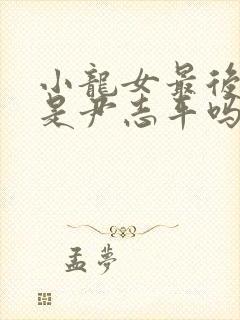 小龍女最後
是尹志平嗎
孟夢